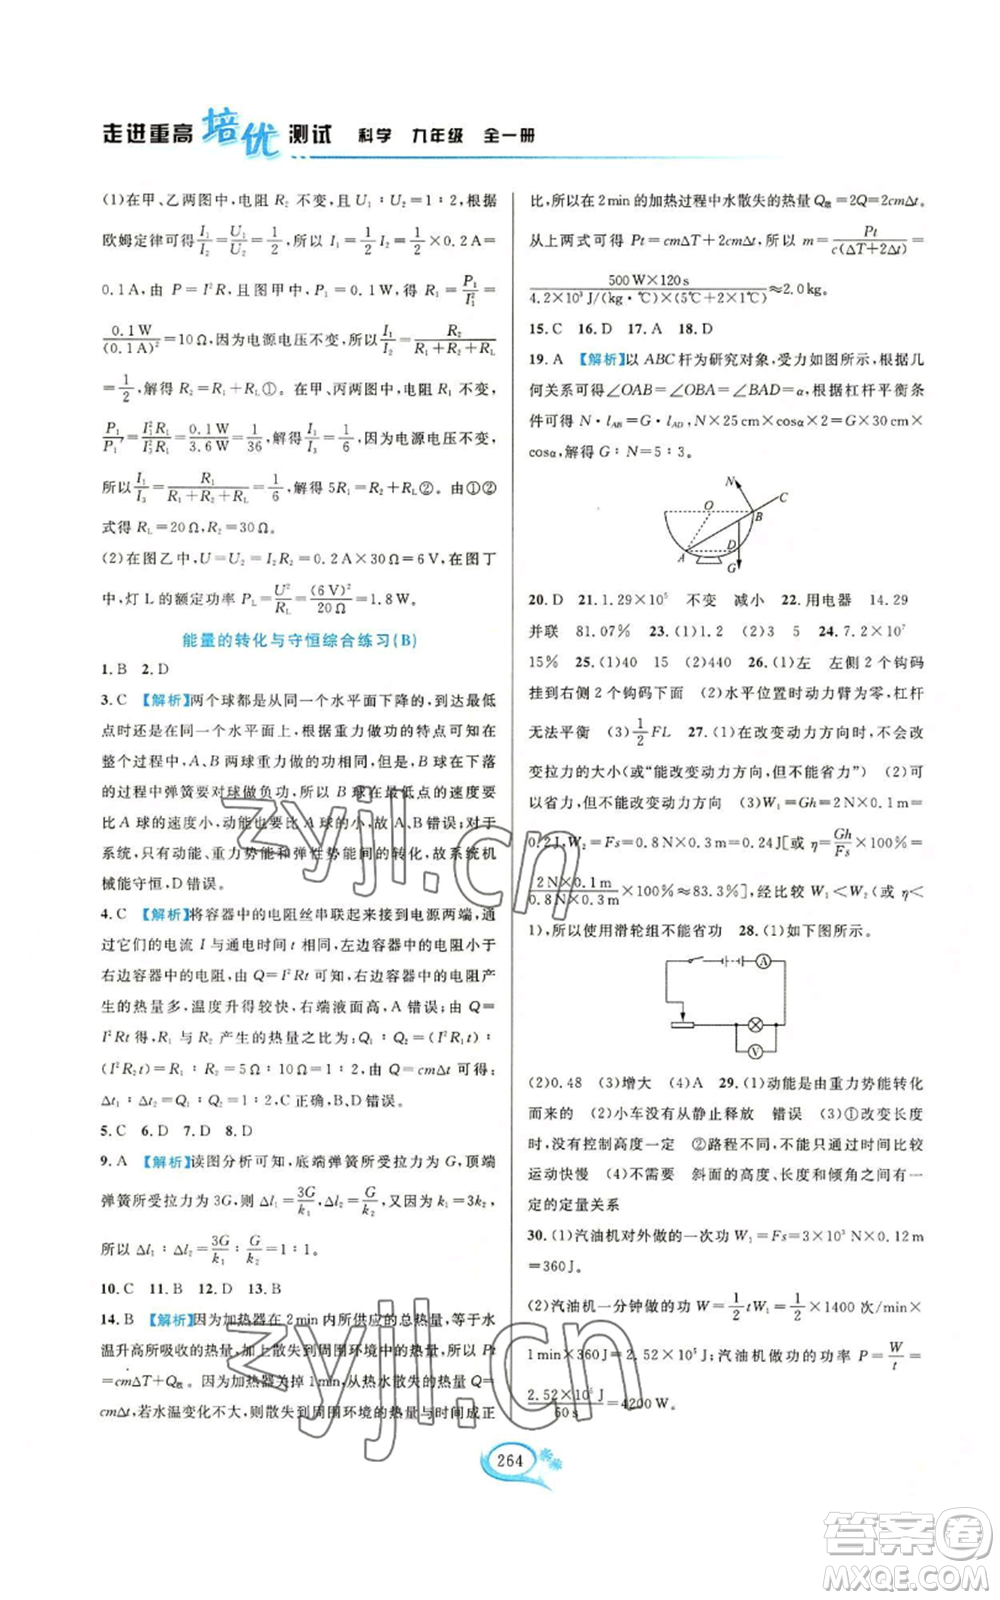 走进重高培优测试 科学 九年级 全一册
(1)在甲、乙两图中,电阻 R₂ 不变,且 U₁∶U₂=1∶2,根据
欧姆定律可得 I₁/I₂=U₁/U₂=1/2,所以 I₁=1/2 I₂=1/2×0.2 A=
0.1 A,由 P=I²R 得,因为 P₁=0.1 W,所以 R₁=P₁/I₁²=
0.1 W/(0.1 A)²=10 Ω,因为电源电压不变,所以 I₁/I₂=R₂/(R₁+R₂+R_L)=
1/2,解得 R₂=R₁+R_L①。在甲、丙两图中,电阻 R₁ 不变,
P₁/P₁'=I₁²R₁/I₃²R₁=0.1 W/3.6 W=1/36,解得 I₁/I₃=1/6,因为电源电压不变,
所以 I₁/I₃=R₁/(R₁+R₂+R_L)=1/6,解得 5R₁=R₂+R_L②。由①②
式得 R_L=20 Ω,R₂=30 Ω。
(2)在图乙中,U=U₂=I₂R₂=0.2 A×30 Ω=6 V,在图丁
中,灯 L 的额定功率 P_L=U²/R_L=(6 V)²/20 Ω=1.8 W。
能量的转化与守恒综合练习(B)
1. B 2. D
3. C 【解析】两个球都是从同一个水平面下降的,到达最低
点时还是在同一个水平面上,根据重力做功的特点可知在
整个过程中,A、B 两球重力做的功相同,但是,B 球在下落
的过程中弹簧要对球做负功,所以 B 球在最低点的速度要
比 A 球的速度小,动能也要比 A 球的小,故 A、B 错误;对于
系统,只有动能、重力势能和弹性势能间的转化,故系统机
械能守恒,D 错误。
4. C 【解析】将容器中的电阻丝串联起来接到电源两端,通
过它们的电流 I 与通电时间 t 相同,左边容器中的电阻小于
右边容器中的电阻,根据 Q=I²Rt 得,右边容器中的电阻产
生的热量多,温度升得较快,右端液面高,A 错误;由 Q=
I²Rt 得,R₁ 与 R₂ 产生的热量之比为:Q₁∶Q₂=(I²R₁t)∶
(I²R₂t)=R₁∶R₂=5 Ω∶10 Ω=1∶2,根据 Q=cmΔt 可得:
Δt₁∶Δt₂=Q₁∶Q₂=1∶2,C 正确,B、D 错误。
5. C 6. D 7. D 8. D
9. A 【解析】读图分析可知,底端弹簧所受拉力为 4G,顶端
弹簧所受拉力为 3G,则 Δl₁=3G/k₁,Δl₂=G/k₂,又因为 k₁=3k₂,
所以 Δl₁∶Δl₂=3G/k₁∶G/k₂=1∶1。
10. C 11. B 12. D 13. B
14. B 【解析】因为加热器在 2 min 内所供应的总热量,等于水
温升高所吸收的热量,加上散失到周围环境中的热量,所以 Pt
=cmΔT+Q散。因为加热器关掉 1 min,从热水散失的热量 Q=
cmΔt,若水温变化不大,则散失到周围环境的热量与时间成正
比,所以在 2 min 的加热过程中水散失的热量 Q散=2Q=2cmΔt。
从上两式可得 Pt=cmΔT+2cmΔt,所以 m=Pt/c(ΔT+2Δt)=
500 W×120 s/4.2×10³ J/(kg·℃)×(5℃+2×1℃)≈2.0 kg。
15. C 16. D 17. A 18. D
19. A 【解析】以 ABC 杆为研究对象,受力如图所示,根据几
何关系可得∠OAB=∠OBA=∠BAD=α,根据杠杆平衡条
件可得 N·l_AB=G·l_AD,N×25 cm×cosα=G×30 cm×
cosα,解得 G∶N=5∶3。
N
C
O
B
A
D
G
20. D 21. 1.29×10⁵ 不变 减小 22. 用电器 14.29
并联 81.07% 23. (1)1.2 (2)3 5 24. 7.2×10⁷
15% 25. (1)40 (2)440 26. (1)左 左侧 2 个钩码
挂到右侧 2 个钩码下面 (2)水平位置时动力臂为零,杠杆
无法平衡 (3)1/2 FL 27. (1)在改变动力方向时,不会改
变拉力的大小(或“能改变动力方向,但不能省力”) (2)可
以省力,但不能改变动力方向 (3)W₁=Gh=2 N×0.1 m=
0.2 J,W₂=Fs=0.8 N×0.3 m=0.24 J[或 η=Gh/Fs=
2 N×0.1 m/0.8 N×0.3 m≈83.3%],经比较 W₁<W₂(或 η<
1),所以使用滑轮组不能省功 28. (1)如下图所示。
A
V
(2)0.48 (3)增大 (4)A 29. (1)动能是由重力势能转化
而来的 (2)小车没有从静止释放 错误 (3)①改变长度
时,没有控制高度一定 ②路程不同,不能通过时间比较
运动快慢 (4)不需要 斜面的高度、长度和倾角之间有一
定的定量关系
30. (1)汽油机对外做的一次功 W₁=Fs=3×10³ N×0.12 m
=360 J。
(2)汽油机一分钟做的功 W=1/2 tW₁=1/2×1400 次/
1 min×360 J=2.52×10⁵ J;汽油机做功的功率 P=W/t=
2.52×10⁵ J/60 s=4200 W。
264
zyjl.cn
zyjl.cn
答案卷
MXQE.COM